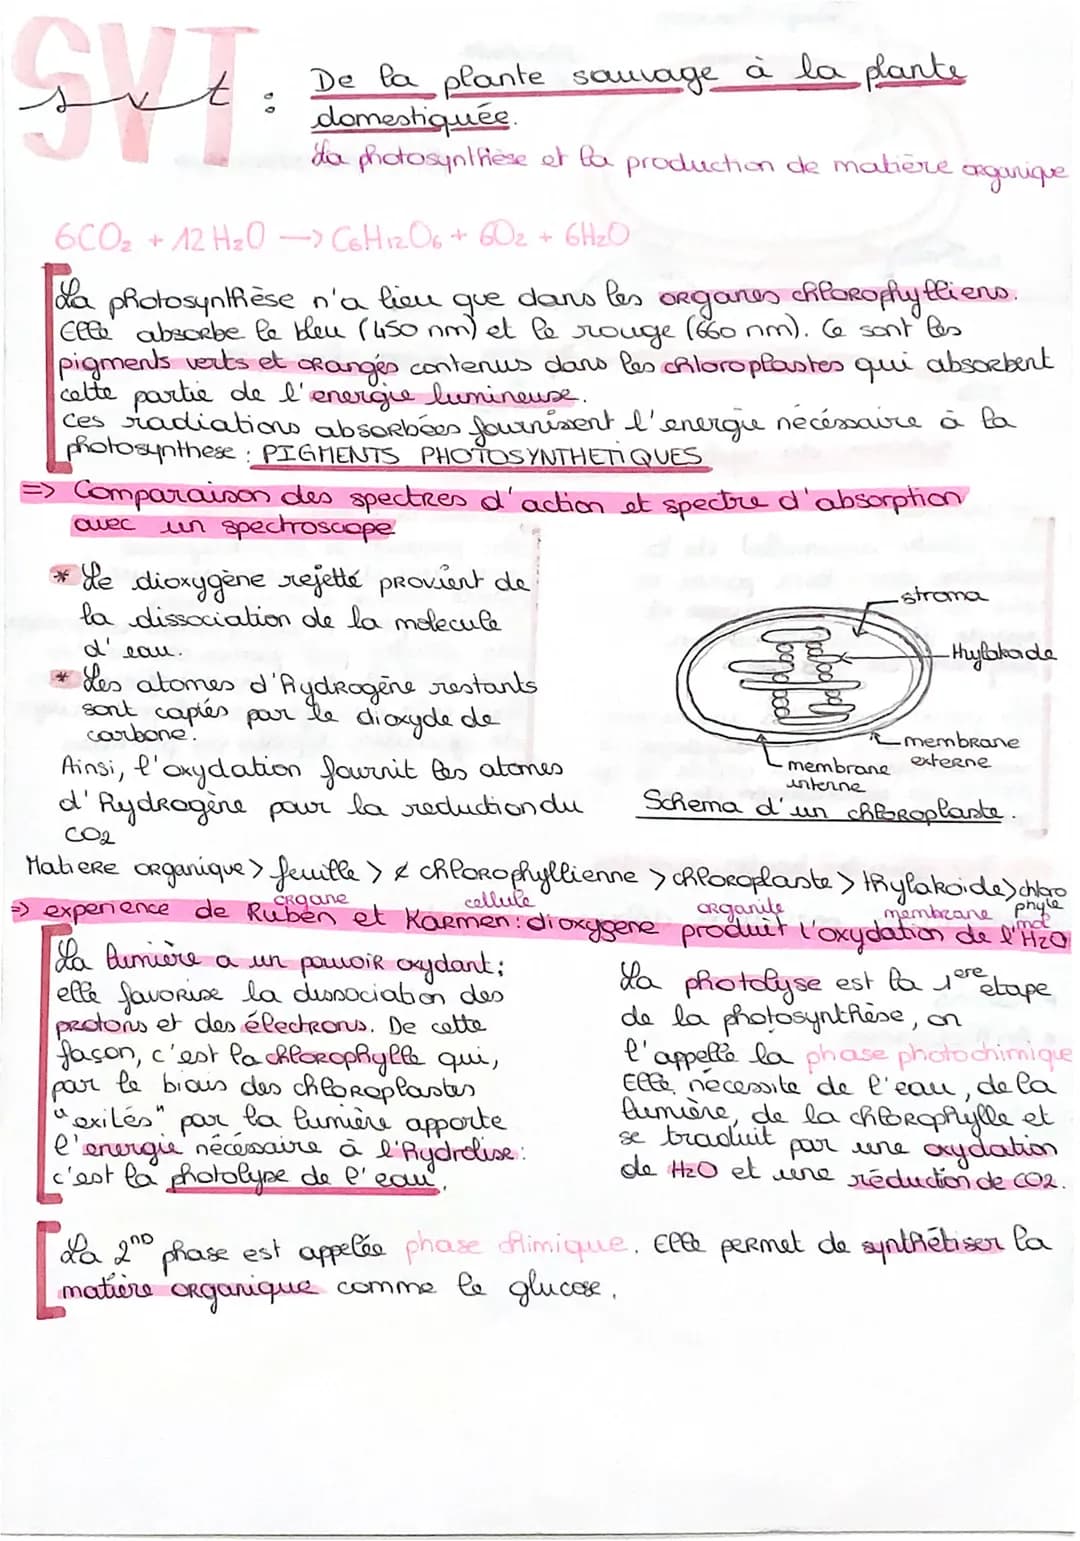 SVT
svt : De la plante sauvage à la plante
domestiquée.
La photosynthèse et la production de matière organique
6CO2 + 12 H2O —> C6H12O6 + 6O2 + 6H2O
La photosynthèse n'a lieu que dans les organes chlorophylliens.
Elle absorbe le bleu (450 nm) et le rouge (660 nm). Ce sont les
pigments verts et orangés contenus dans les chloroplastes qui absorbent
cette partie de l'energie lumineuse.
ces radiations absorbées fournissent l'energie nécéssaire à la
photosynthese : PIGMENTS PHOTOSYNTHETIQUES
=> Comparaison des spectres d'action et spectre d'absorption
avec un spectroscope
* Le dioxygène rejetté provient de
la dissociation de la molecule
d'eau.
* Les atomes d'hydrogène restants
sont captés par le dioxyde de
carbone.
Ainsi, l'oxydation fournit les atomes
d'hydrogène pour la reduction du
CO2
stroma
thylakoide
membrane
externe
membrane
interne
Schema d'un chloroplaste.
Matiere organique > feuille > chlorophyllienne > chloroplaste > thylakoide > chloro
phyle
organe cellule organite membrane mol
=> experience de Ruben et Karmen : dioxygene produit l'oxydation de l'H2O
La lumière a un pouvoir oxydant ;
elle favorise la dissociation des
protons et des électrons. De cette
façon, c'est la chlorophylle qui,
par le biais des chloroplastes
"exilés" par la lumière apporte
l'energie nécéssaire à l'hydrolise :
c'est la photolyse de l'eau.
La photolyse est la 1ere etape
de la photosynthèse, on
l'appelle la phase photochimique
Elle nécessite de l'eau, de la
lumière, de la chlorophylle et
se traduit par une oxydation
de H2O et une réduction de CO2.
La 2nd phase est appelée phase chimique. Elle permet de synthétiser la
matière organique comme le glucose.